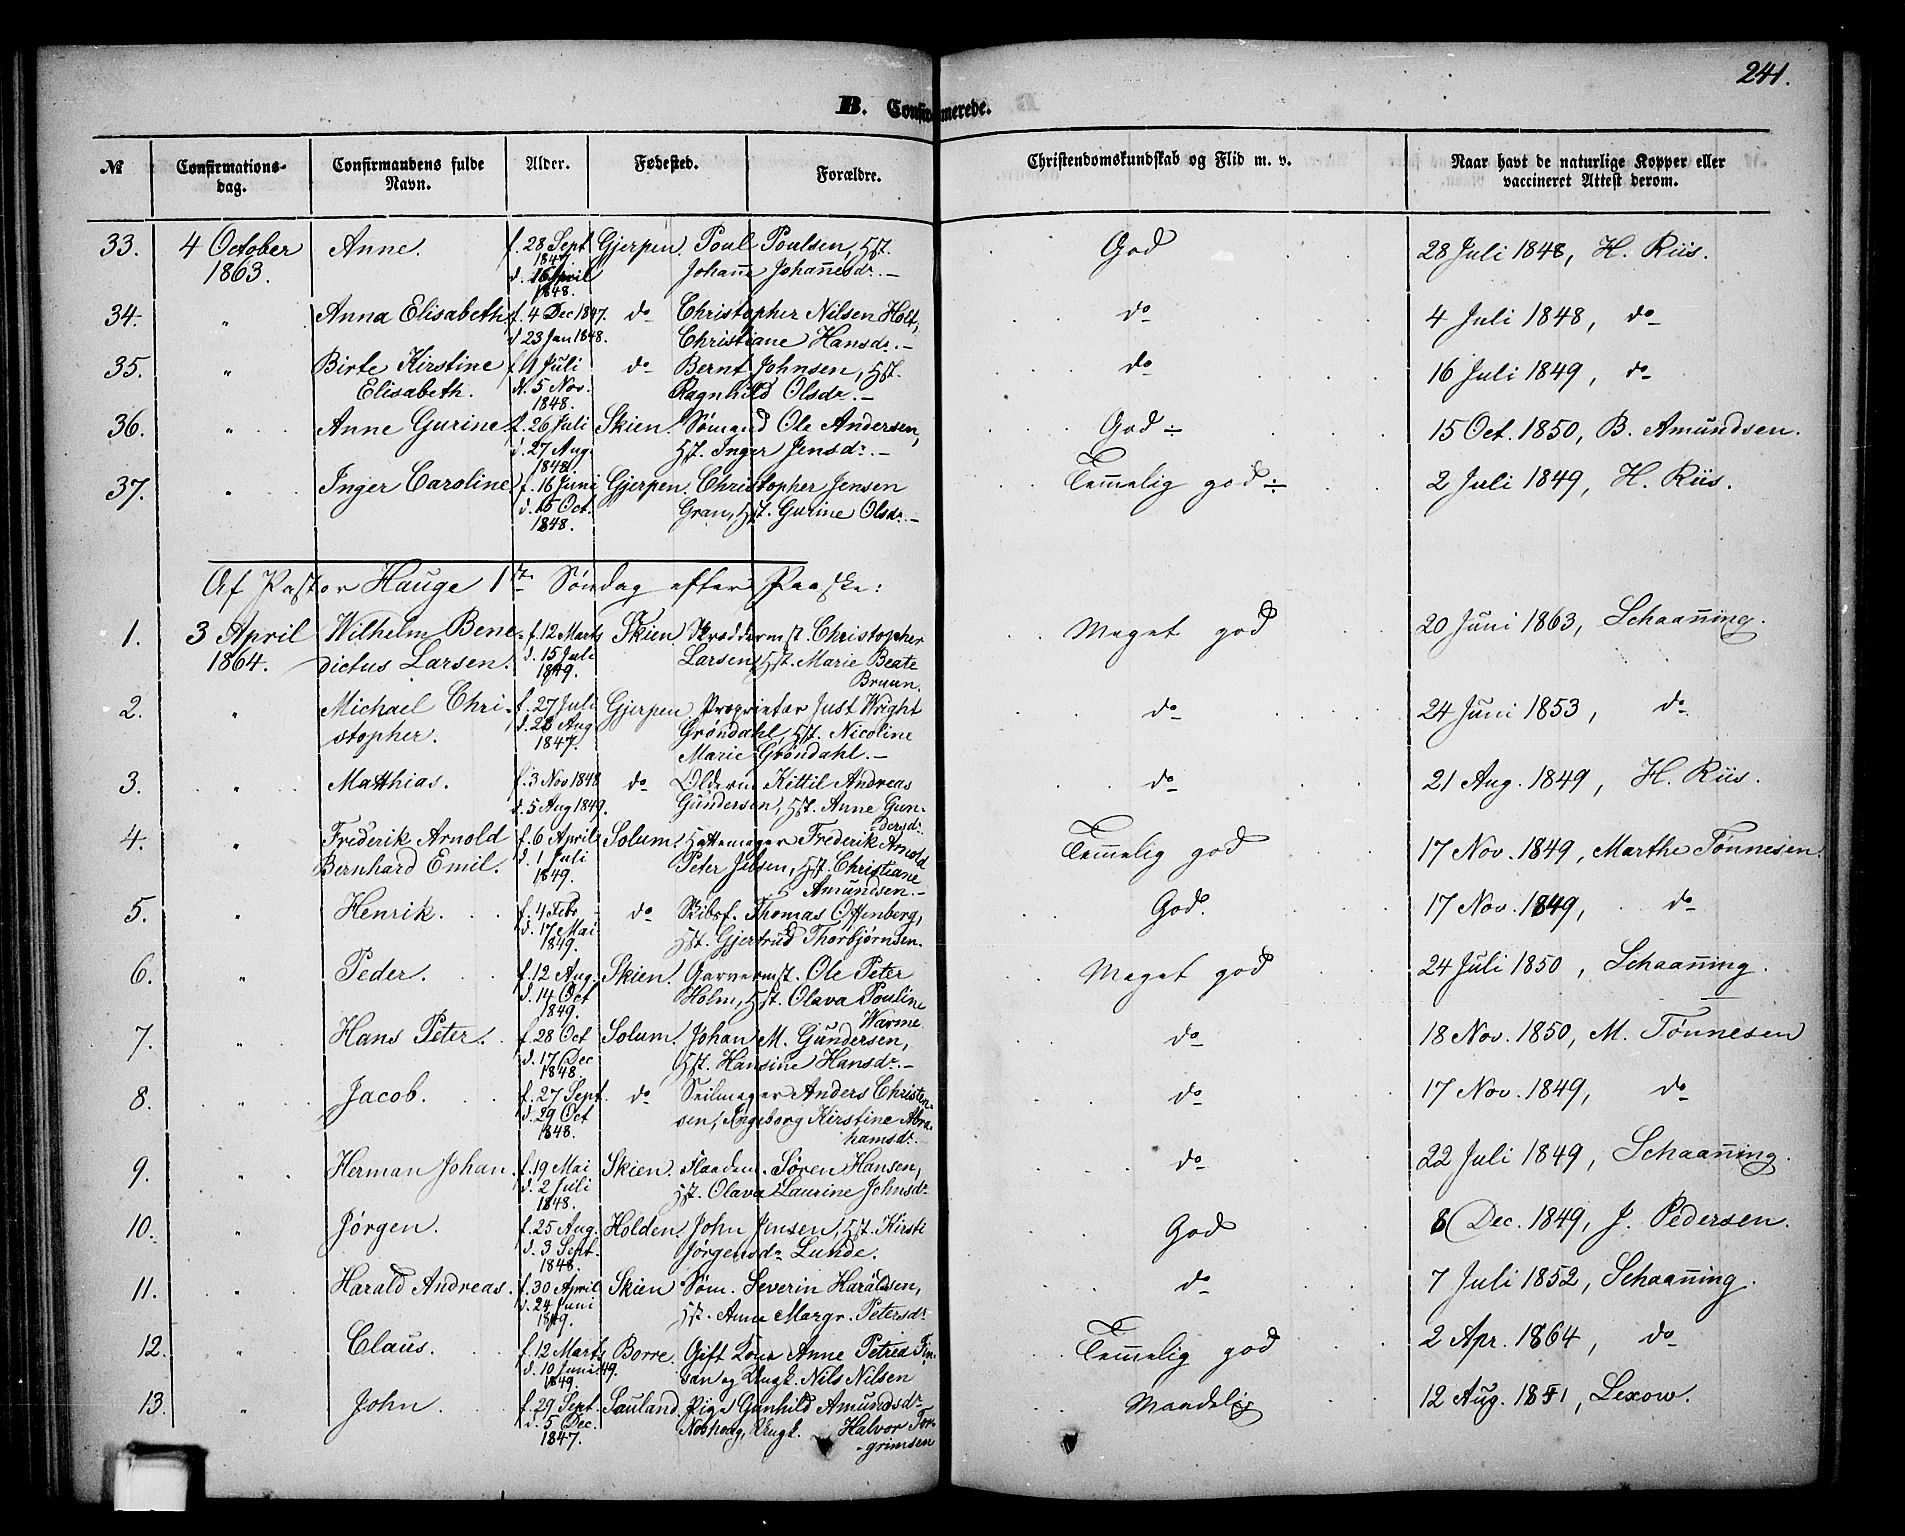 241.
B. Confirmerede.
№ Confirmations-dag. Confirmandens fulde Navn. Alder. Fødested. Forældre. Christendomskundskab og Flid m. v. Naar havt de naturlige Kopper eller vaccineret Attest derom.
33. 4 October Anne. f. 28 Sept Gjerpen. Poul Poulsen, Hst. God 28 Juli 1848, H. Riis.
1863. 1847 d. 16 April 1848. Johanne Johannesdr. –
34. " Anna Elisabeth f. 4 Dec 1847. do Christopher Nilsen Holt, do 4 Juli 1848, do
d 23 Jan 1848. Christiane Hansdr. –
35. " Birte Kirstine f. 11 Juli do Bernt Johnsen, Hst. do 16 Juli 1849, do
Elisabeth. d. 5 Nov. 1848. Ragnhild Olsdr. –
36. " Anne Gurine. f. 26 Juli Skien. Sømand Ole Andersen, God ÷ 15 Oct. 1850, B. Amundsen.
d. 27 Aug. 1848. Hst. Inger Jensdr. –
37. " Inger Caroline f. 16 Juni Gjerpen. Christopher Jensen Temmelig god ÷ 2 Juli 1849, H. Riis.
d. 15 Oct. 1848. Gran, Hst. Gurine Olsdr. –
Af Pastor Hauge 1ste Søndag efter Paaske:
1. 3 April Wilhelm Bene- f. 12 Marts Skien Skræddermst. Christopher Meget god 20 Juni 1863, Schaanning.
1864. dictus Larsen. d. 15 Juli 1849. Larsen, Hst. Marie Beate
Bruun.
2. " Michael Chri- f. 27 Juli Gjerpen Proprietær Just Wright do 24 Juni 1853, do
stopher. d. 28 Aug 1847. Grøndahl, Hst. Nicoline
Marie Grøndahl. –
3. " Matthias. f. 3 Nov 1848 do Olderm. Kittil Andreas do 21 Aug. 1849, H. Riis.
d. 5 Aug 1849. Gundersen, Hst. Anne Gun-
dersdr.
4. " Frederik Arnold f. 6 April Solum. Hattemager Frederik Arnold Temmelig god 17 Nov. 1849, Marthe Tønnesen.
Bernhard Emil. d. 1 Juli 1849. Peter Jebsen, Hst. Christiane
Amundsen. –
5. " Henrik. f. 4 Feb. do Skibsf. Thomas Offenberg, God. 17 Nov. 1849, do
d. 17 Mai 1849. Hst. Gjertrud Thorbjørnsen.
6. " Peder. f. 12 Aug. Skien. Garvermst. Ole Peter Meget god 24 Juli 1850, Schaanning.
d. 14 Oct 1849. Holm, Hst. Olava Pouline
Warme.
7. " Hans Peter. f. 28 Oct Solum. Johan M. Gundersen, do 18 Nov. 1850, M. Tønnesen
d. 17 Dec 1848. Hst. Hansine Hansdr. –
8. " Jacob. f. 27 Sept. do Seilmager Anders Christen- do 17 Nov. 1849, do
d. 29 Oct 1848. sen, Ingeborg Kirstine Abra-
hamsdr. –
9. " Herman Johan. f. 19 Mai Skien. Flaadem. Søren Hansen, do 22 Juli 1849, Schaanning.
d. 2 Juli 1848. Hst. Olava Laurine Johnsdr
10. " Jørgen. f. 25 Aug. Holden. John Jensen, Hst. Kirsti God 8 Dec. 1849, J. Pedersen.
d. 3 Sept. 1848. Jørgensdr Lunde.
11. " Harald Andreas. f. 30 April Skien Søm. Severin Haraldsen, do 7 Juli 1852, Schaanning.
d. 24 Juni 1849. Hst. Anne Margr. Petersdr
12. " Claus. f. 12 Marts Borre. Gift Kone Anne Petrea Fin- Temmelig god 2 Apr. 1864, do
d. 10 Juni 49. 1849 san og Ungk. Nils Nilsen
13. " John. f. 29 Sept. Sauland. Pige Gunhild Amundsdr Maadelig 12 Aug. 1851, Lexow.
d. 5 Dec. 1847. Ungk. Halvor Tor-
grimsen